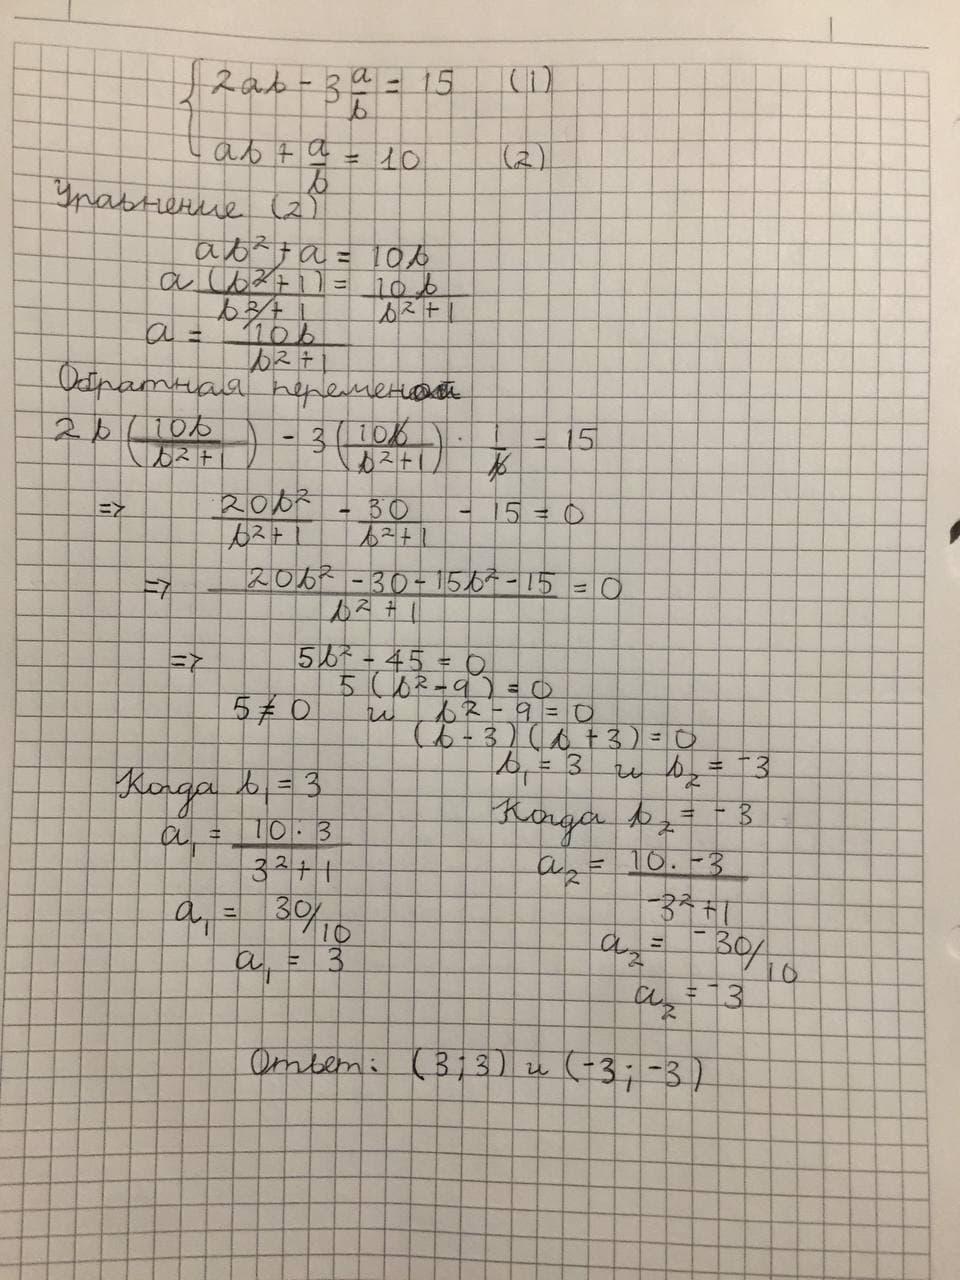 2ab - 3 a/b = 15 (1)
ab + a/b = 10 (2)
Уравнение (2)
ab² + a = 10b
a (b² + 1) / b² + 1 = 10b / b² + 1
a = 10b / b² + 1
Обратная
2b (10b / b² + 1) - 3 (10b / b² + 1) · 1/b = 15
=> 20b² / b² + 1 - 30 / b² + 1 - 15 = 0
=> 20b² - 30 - 15b² - 15 / b² + 1 = 0
=> 5b² - 45 = 0
5 (b² - 9) = 0
5 ≠ 0 и b² - 9 = 0
(b - 3) (b + 3) = 0
b₁ = 3 и b₂ = -3
Когда b₁ = 3
a₁ = 10 · 3 / 3² + 1
a₁ = 30/10
a₁ = 3
Когда b₂ = -3
a₂ = 10 · -3 / -3² + 1
a₂ = -30/10
a₂ = -3
Ответ: (3; 3) и (-3; -3)